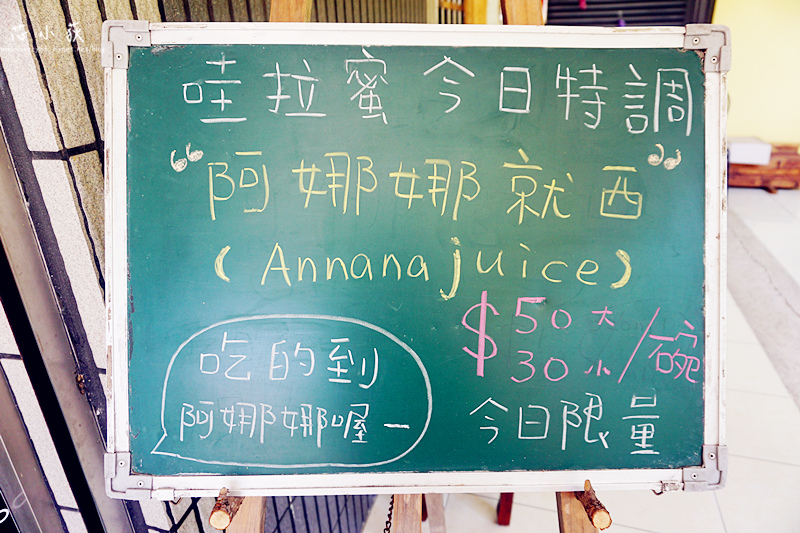 花小荻
哇拉蜜今日特調
“阿娜娜就西”
(Annana juice)
$50大
30小/碗
吃的到
阿娜娜喔一
今日限量